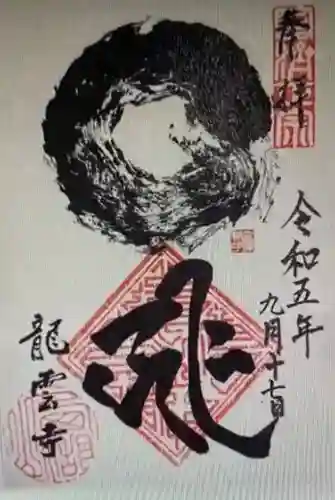 奉拝
令和五年
九月十七日
龍雲寺